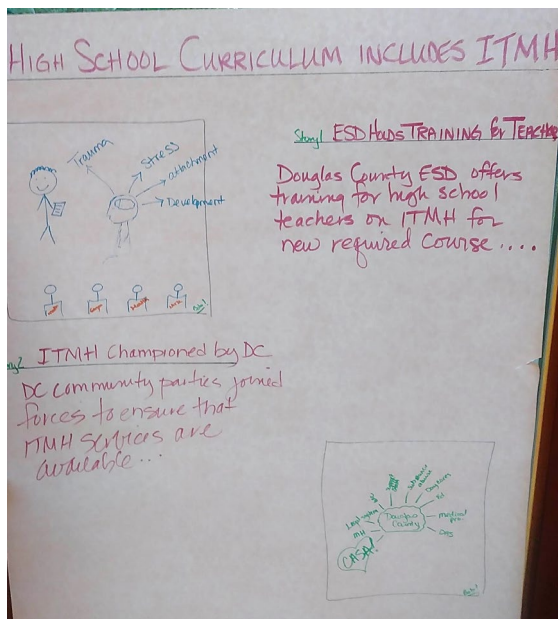 HIGH SCHOOL CURRICULUM INCLUDES ITMH
Trauma
Stress
attachment
Development
Story1 ESD Holds TRAINING for TEACHERS
Douglas County ESD offers
training for high school
teachers on ITMH for
new required Course ....
ITMH Championed by DC
DC community parties joined
forces to ensure that
ITMH services are
available...
Douglas
County
medical
MH
CASA!